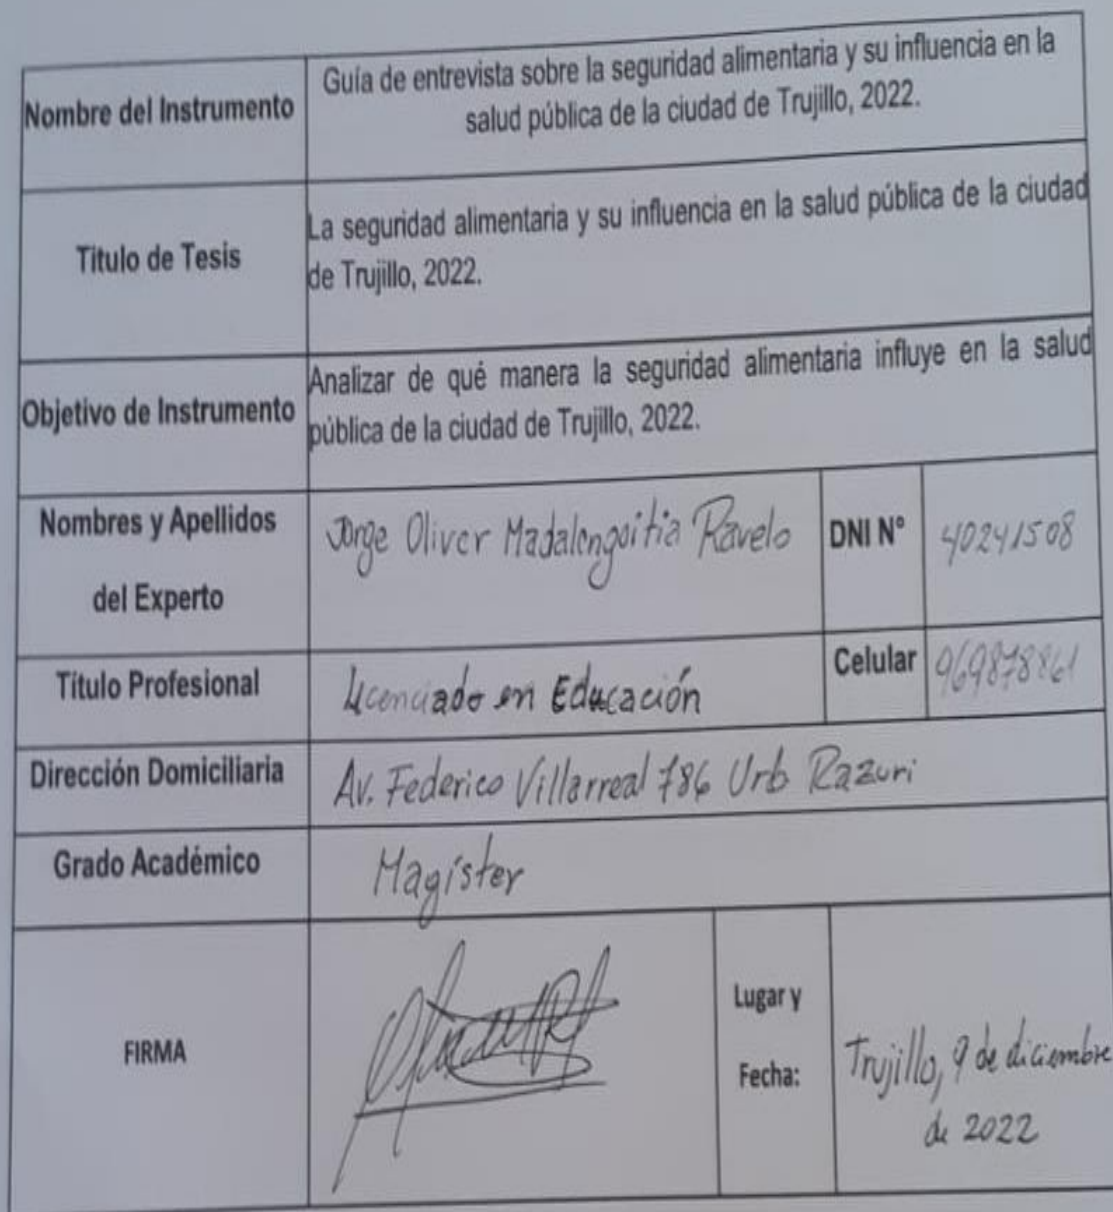 Nombre del Instrumento
Guía de entrevista sobre la seguridad alimentaria y su influencia en la
salud pública de la ciudad de Trujillo, 2022.
Titulo de Tesis
La seguridad alimentaria y su influencia en la salud pública de la ciudad
de Trujillo, 2022.
Objetivo de Instrumento
Analizar de qué manera la seguridad alimentaria influye en la salud
pública de la ciudad de Trujillo, 2022.
Nombres y Apellidos
del Experto
Jorge Oliver Madalengoitia Ravelo
DNI N°
40241508
Título Profesional
Licenciado en Educación
Celular
Dirección Domiciliaria
Av. Federico Villarreal 786 Urb Razuri
Grado Académico
Magíster
FIRMA
Lugar y
Fecha:
Trujillo, 9 de diciembre
de 2022